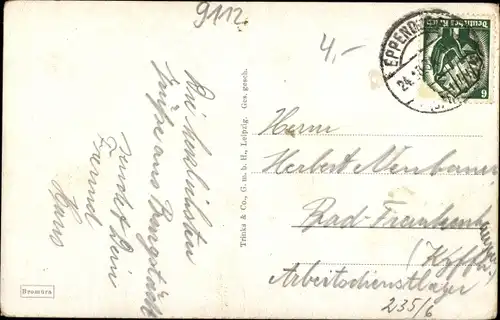 9112
4,-
EPPENDORF
Deutsches Reich
6
Die herzlichsten
Grüße aus
sendet Dein
Freund
Hans
Trinks & Co., G. m. b. H., Leipzig. Ges. gesch.
Herrn
Herbert Neubauer
Bad Frankenhausen
(Kyffh.)
Arbeitsdienstlager
235/6
Bromüra